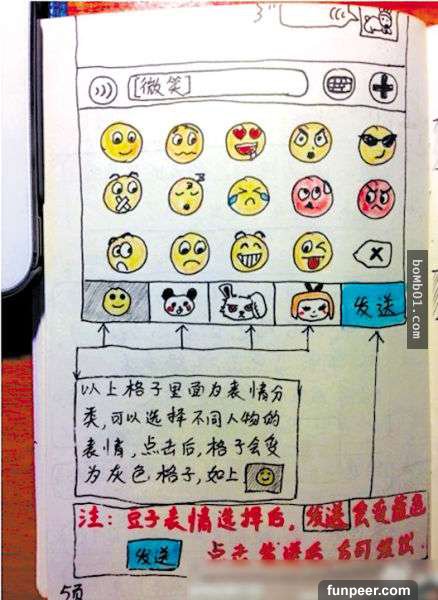 [微笑]
z z
发送
以上格子里面为表情分
类,可以选择不同人物的
表情,点击后,格子会变
为灰色格子,如上
注:豆子表情选择后,发送会变蓝色
发送 点击发送后 方可发出.
5页
boMb01.com
funpeer.com